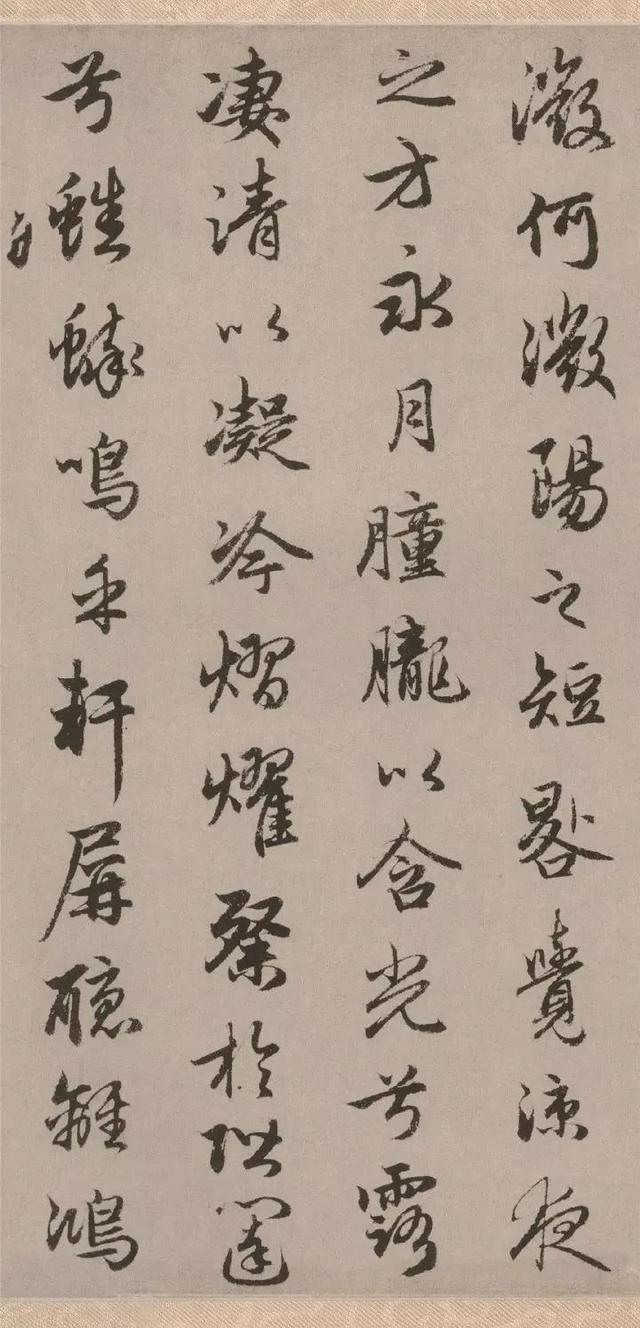 微何微陽之短晷覺涼夜
之方永月朣朧以含光兮露
凄清以凝冷熠燿粲於階闥
兮蟋蟀鳴乎軒屏聽離鴻